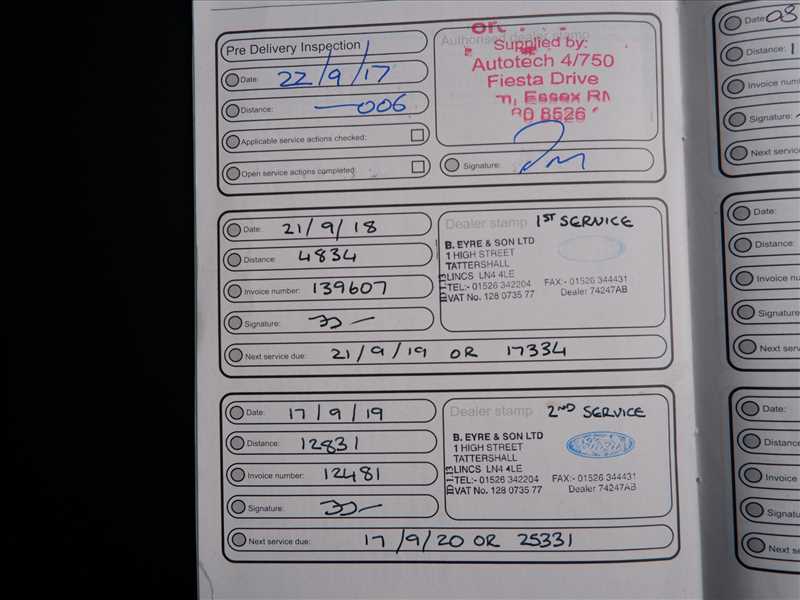 Pre Delivery Inspection
Date: 22/9/17
Distance: 006
Applicable service actions checked:
Open service actions completed:
Authorised dealer stamp
Supplied by:
Autotech 4/750
Fiesta Drive
Essex
8526
Signature:
Date: 21/9/18
Distance: 4834
Invoice number: 139607
Signature:
Next service due: 21/9/19 OR 17334
Dealer stamp 1ST SERVICE
B. EYRE & SON LTD
1 HIGH STREET
TATTERSHALL
LINCS LN4 4LE
TEL:- 01526 342204 FAX:- 01526 344431
VAT No. 128 0735 77 Dealer 74247AB
Date: 17/9/19
Distance: 12831
Invoice number: 12481
Signature:
Next service due: 17/9/20 OR 25331
Dealer stamp 2ND SERVICE
B. EYRE & SON LTD
1 HIGH STREET
TATTERSHALL
LINCS LN4 4LE
TEL:- 01526 342204 FAX:- 01526 344431
VAT No. 128 0735 77 Dealer 74247AB
Date: 03
Distance:
Invoice n
Signature:
Next service
Date:
Distance:
Invoice nu
Signature
Next serv
Date:
Distance
Invoice
Signatu
Next se